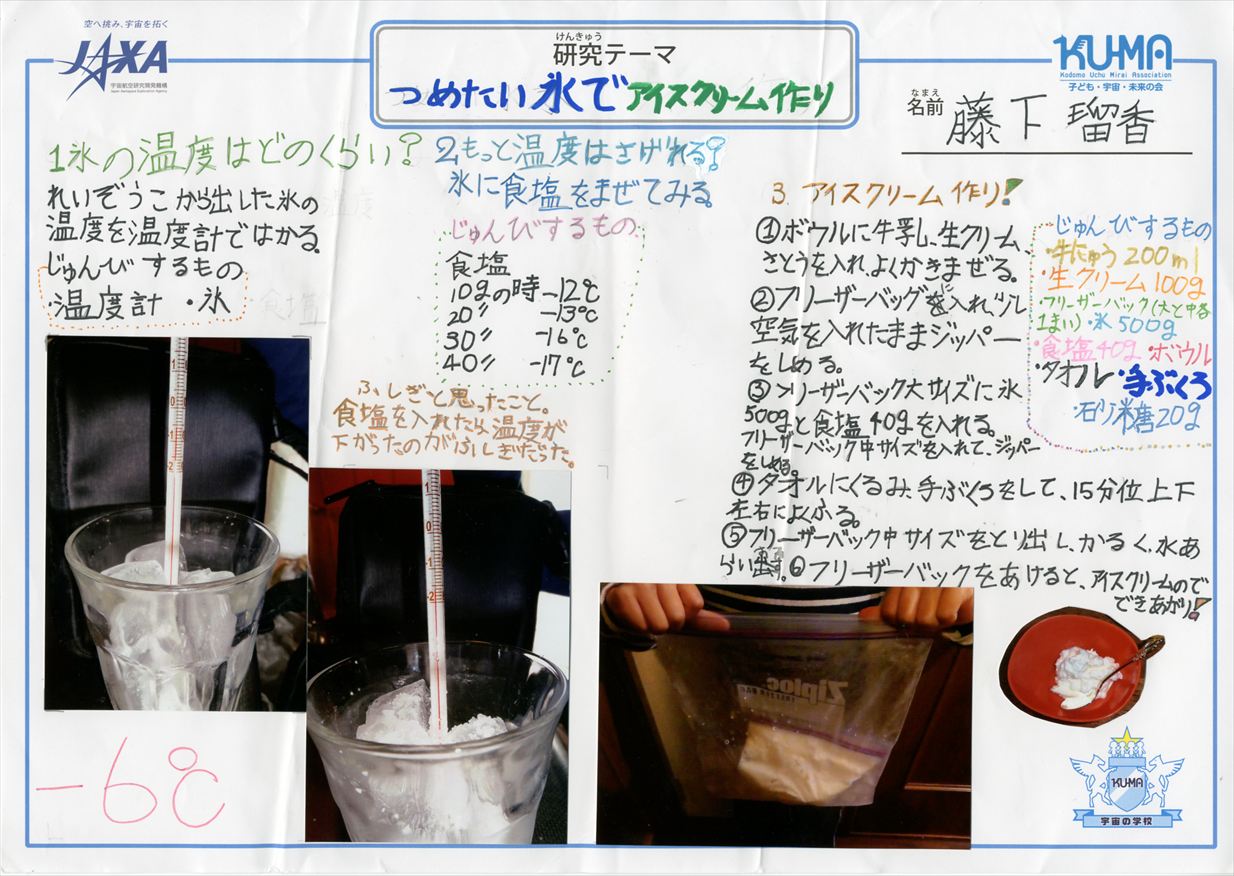 空へ挑み、宇宙を拓く
JAXA
宇宙航空研究開発機構
Japan Aerospace Exploration Agency
けんきゅう
研究テーマ
つめたい氷でアイスクリーム作り
KU-MA
Kodomo Uchu Mirai Association
子ども・宇宙・未来の会
なまえ
名前 藤下 瑠香
1氷の温度はどのくらい?
れいぞうこから出した氷の
温度を温度計ではかる。
じゅんびするもの
・温度計 ・氷
-6℃
2.もっと温度はさげれる?
氷に食塩をまぜてみる。
じゅんびするもの
食塩
10gの時-12℃
20〃 -13℃
30〃 -16℃
40〃 -17℃
ふしぎと思ったこと。
食塩を入れたら温度が
下がったのがふしぎだった。
3. アイスクリーム作り!
①ボウルに牛乳、生クリーム、
さとうを入れ、よくかきまぜる。
②フリーザーバッグに入れ、少し
空気を入れたままジッパー
をしめる。
③フリーザーバック大サイズに氷
500gと食塩40gを入れる。
フリーザーバック中サイズを入れて、ジッパー
をしめる。
④タオルにくるみ、手ぶくろをして、15分位上下
左右によくふる。
⑤フリーザーバック中サイズをとり出し、かるく、水あ
らい出す。⑥フリーザーバックをあけると、アイスクリームので
できあがり!
じゅんびするもの
・牛にゅう200ml
・生クリーム100g
・フリーザーバック(大と中各
1まい)・氷500g
・食塩40g・ボウル
・タオル・手ぶくろ
・砂糖20g
Ziploc
KU-MA
宇宙の学校